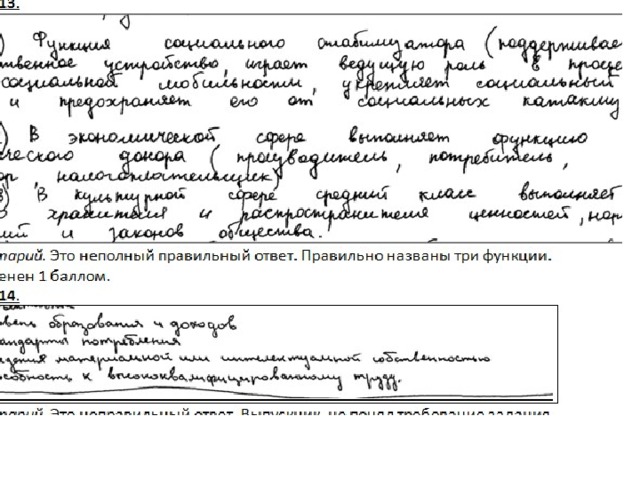 13.
) Функция социального стабилизатора (поддерживае
твенное устройство, играет ведущую роль в проце
социальной мобильности, укрепляет социальный
и предохраняет его от социальных катаклиз
) В экономической сфере выполняет функцию
ческого донора (производитель, потребитель,
ор, налогоплательщик)
3) В культурной сфере средний класс выполняет
хранителя и распространителя ценностей, нор
ий и законов общества.
тарий. Это неполный правильный ответ. Правильно названы три функции.
енен 1 баллом.
14.
овень образования и доходов
андарты потребления
адения материальной или интелектуальной собственностью
особность к высококвалифицированному труду.
тарий. Это неправильный ответ. Выпускник не понял требование задания